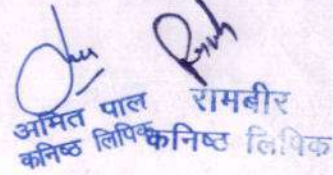 अमित पाल रामबीर
कनिष्ठ लिपिक कनिष्ठ लिपिक